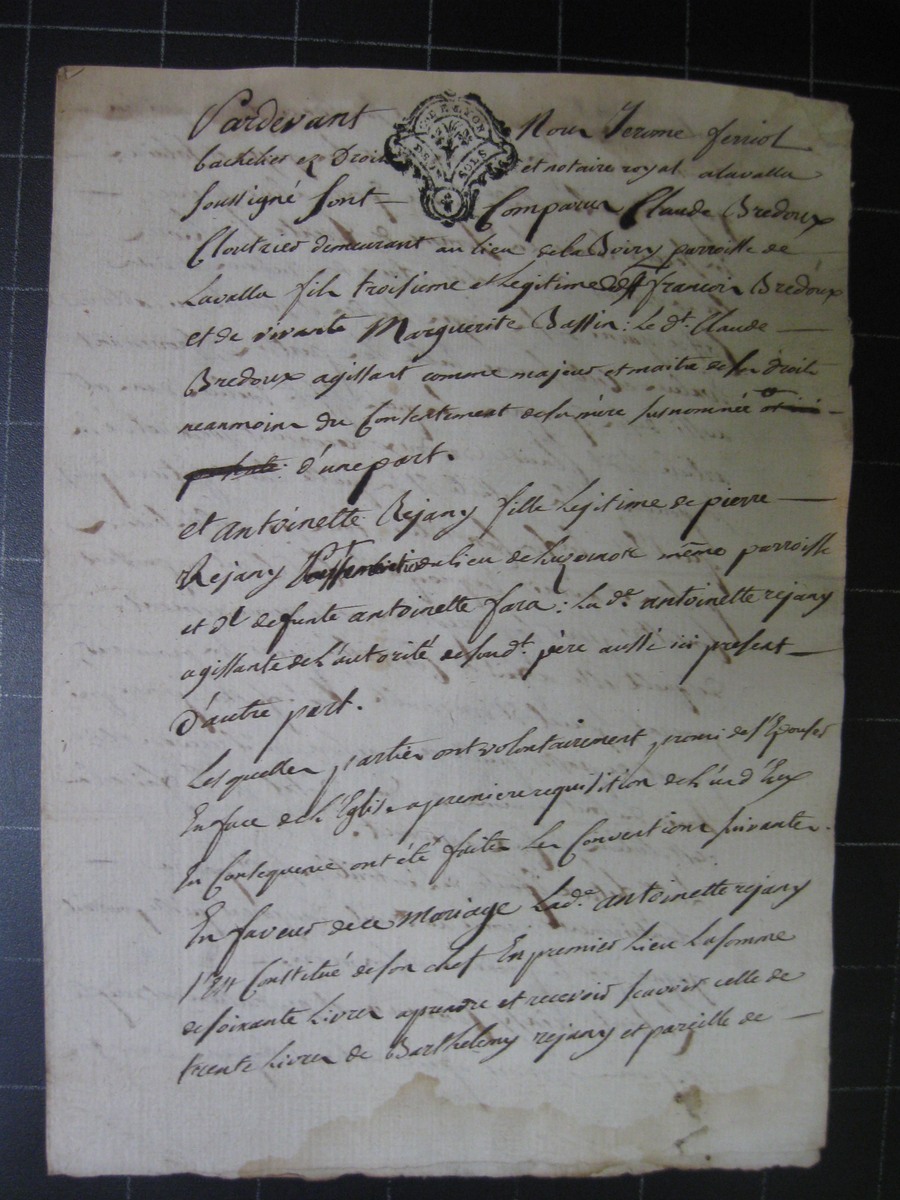 Pardevant Nous Jerome ferriol
bachelier ez Droit et notaire royal a lavalla
Soussigné Sont Comparus Claude Bredoux
Cloutrier demeurant au lieu de la parroisse de
Lavalla fils troisieme et Legitime françois Bredoux
et de vivante Marguerite Bassin : Le dt. Claude
Bredoux agissant comme majeur et maitre de ses droits
neanmoins du Consentement de sa mère susnommée
d'une part.
et antoinette Rejany fille Legitime de pierre
Rejany du lieu de même parroisse
et de defunte antoinette fara : La de. antoinette rejany
agissante de L'autorité de sond. père aussi ici present
D'autre part.
Lesquelles parties ont volontairement promi de s'Epouser
En face de L'Eglise a premiere requisition de L'un d'Eux
En Consequence ont été faites Les Conventions suivantes.
En faveur de ce Mariage Lade. antoinette rejany
s'Est Constitué de son chef En premier Lieu La somme
de soixante Livres a prendre et recevoir scavoir celle de
trente Livres de Barthelemy rejany et pareille de